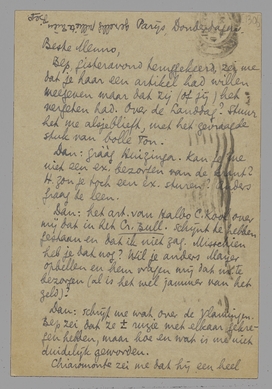 Parijs Donderdag.
Beste Menno,
Bep, gisteravond teruggekeerd, zei me
dat je haar een artikel had willen
meegeven maar dat zij (of jij) het
vergeten had. Over de Landdag? Stuur
het me alsjeblieft, met het gevraagde
stuk van bolle Ton.
Dan: graag Huizinga. Kan je me
niet een ex. bezorgen van de krant?
H. zou je toch een ex. sturen? Anders
graag te leen.
Dan: het art. van Halbo C. Kool over
mij dat in het Cr. Bull. schijnt te hebben
gestaan en dat ik niet zag. Misschien
heb je dat nog? Wil je anders Mayer
opbellen en hem vragen mij dat te
bezorgen (al is het wel jammer van het
geld)?
Dan: schrijf me wat over de Vlamingen.
Bep zei dat ze ± ruzie met elkaar
hebben, maar hoe en wat is me niet
duidelijk geworden.
Chiaromonte zei me dat hij een heel